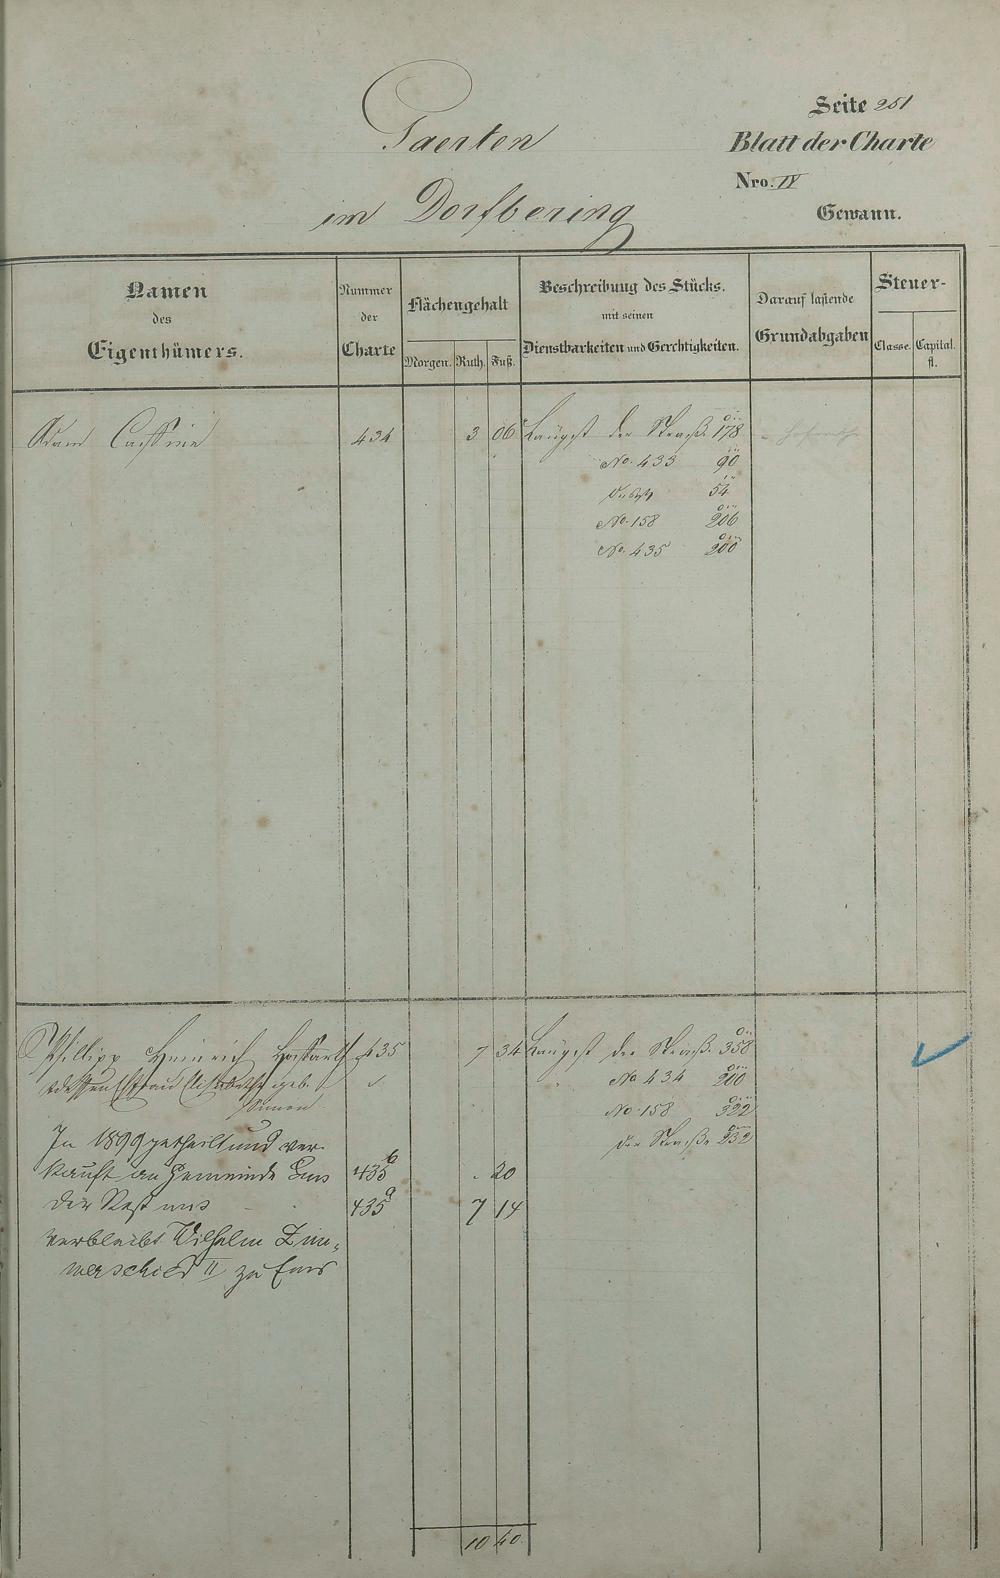 Seite 251
Gaerten
Blatt der Charte
Nro. IV
im Dorfbering
Gewann.
Namen des Eigenthümers.
Nummer der Charte
Flächengehalt
Morgen. Ruth. Fuß.
Beschreibung des Stücks.
mit seinen
Dienstbarkeiten und Gerechtigkeiten.
Darauf lastende
Grundabgaben
Steuer-
Classe. Capital.
fl.
Adam 434 3 06 Laengst der Straße 178
No. 433 90
54
No. 158 206
No. 435 200
Phillipp Heinrich 435 7 34 Laengst der Straße 358
dessen Ehefrau Elisabethe geb. No 434 200
Simon No. 158 322
In 1899 getheilt und ver- der Straße 232
kauft an Gemeinde Ems 435b . 20
der Rest mit 435a 7 14
verbleibt Wilhelm Zim-
merschied II zu Ems
10 40